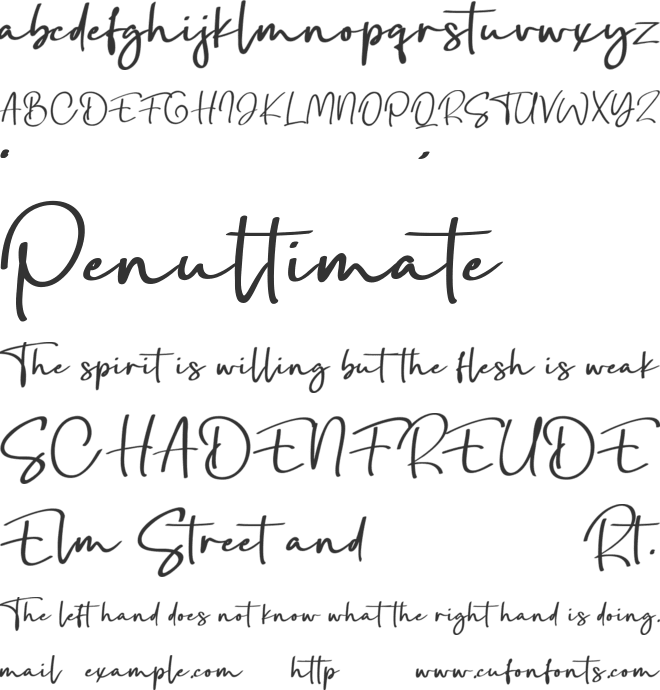 abcdefghijklmnopqrstuvwxyz
ABCDEFGHIJKLMNOPQRSTUVWXYZ
Penultimate
The spirit is willing but the flesh is weak
SCHADENFREUDE
Elm Street and Rt.
The left hand does not know what the right hand is doing.
mail example.com http www.cufonfonts.com